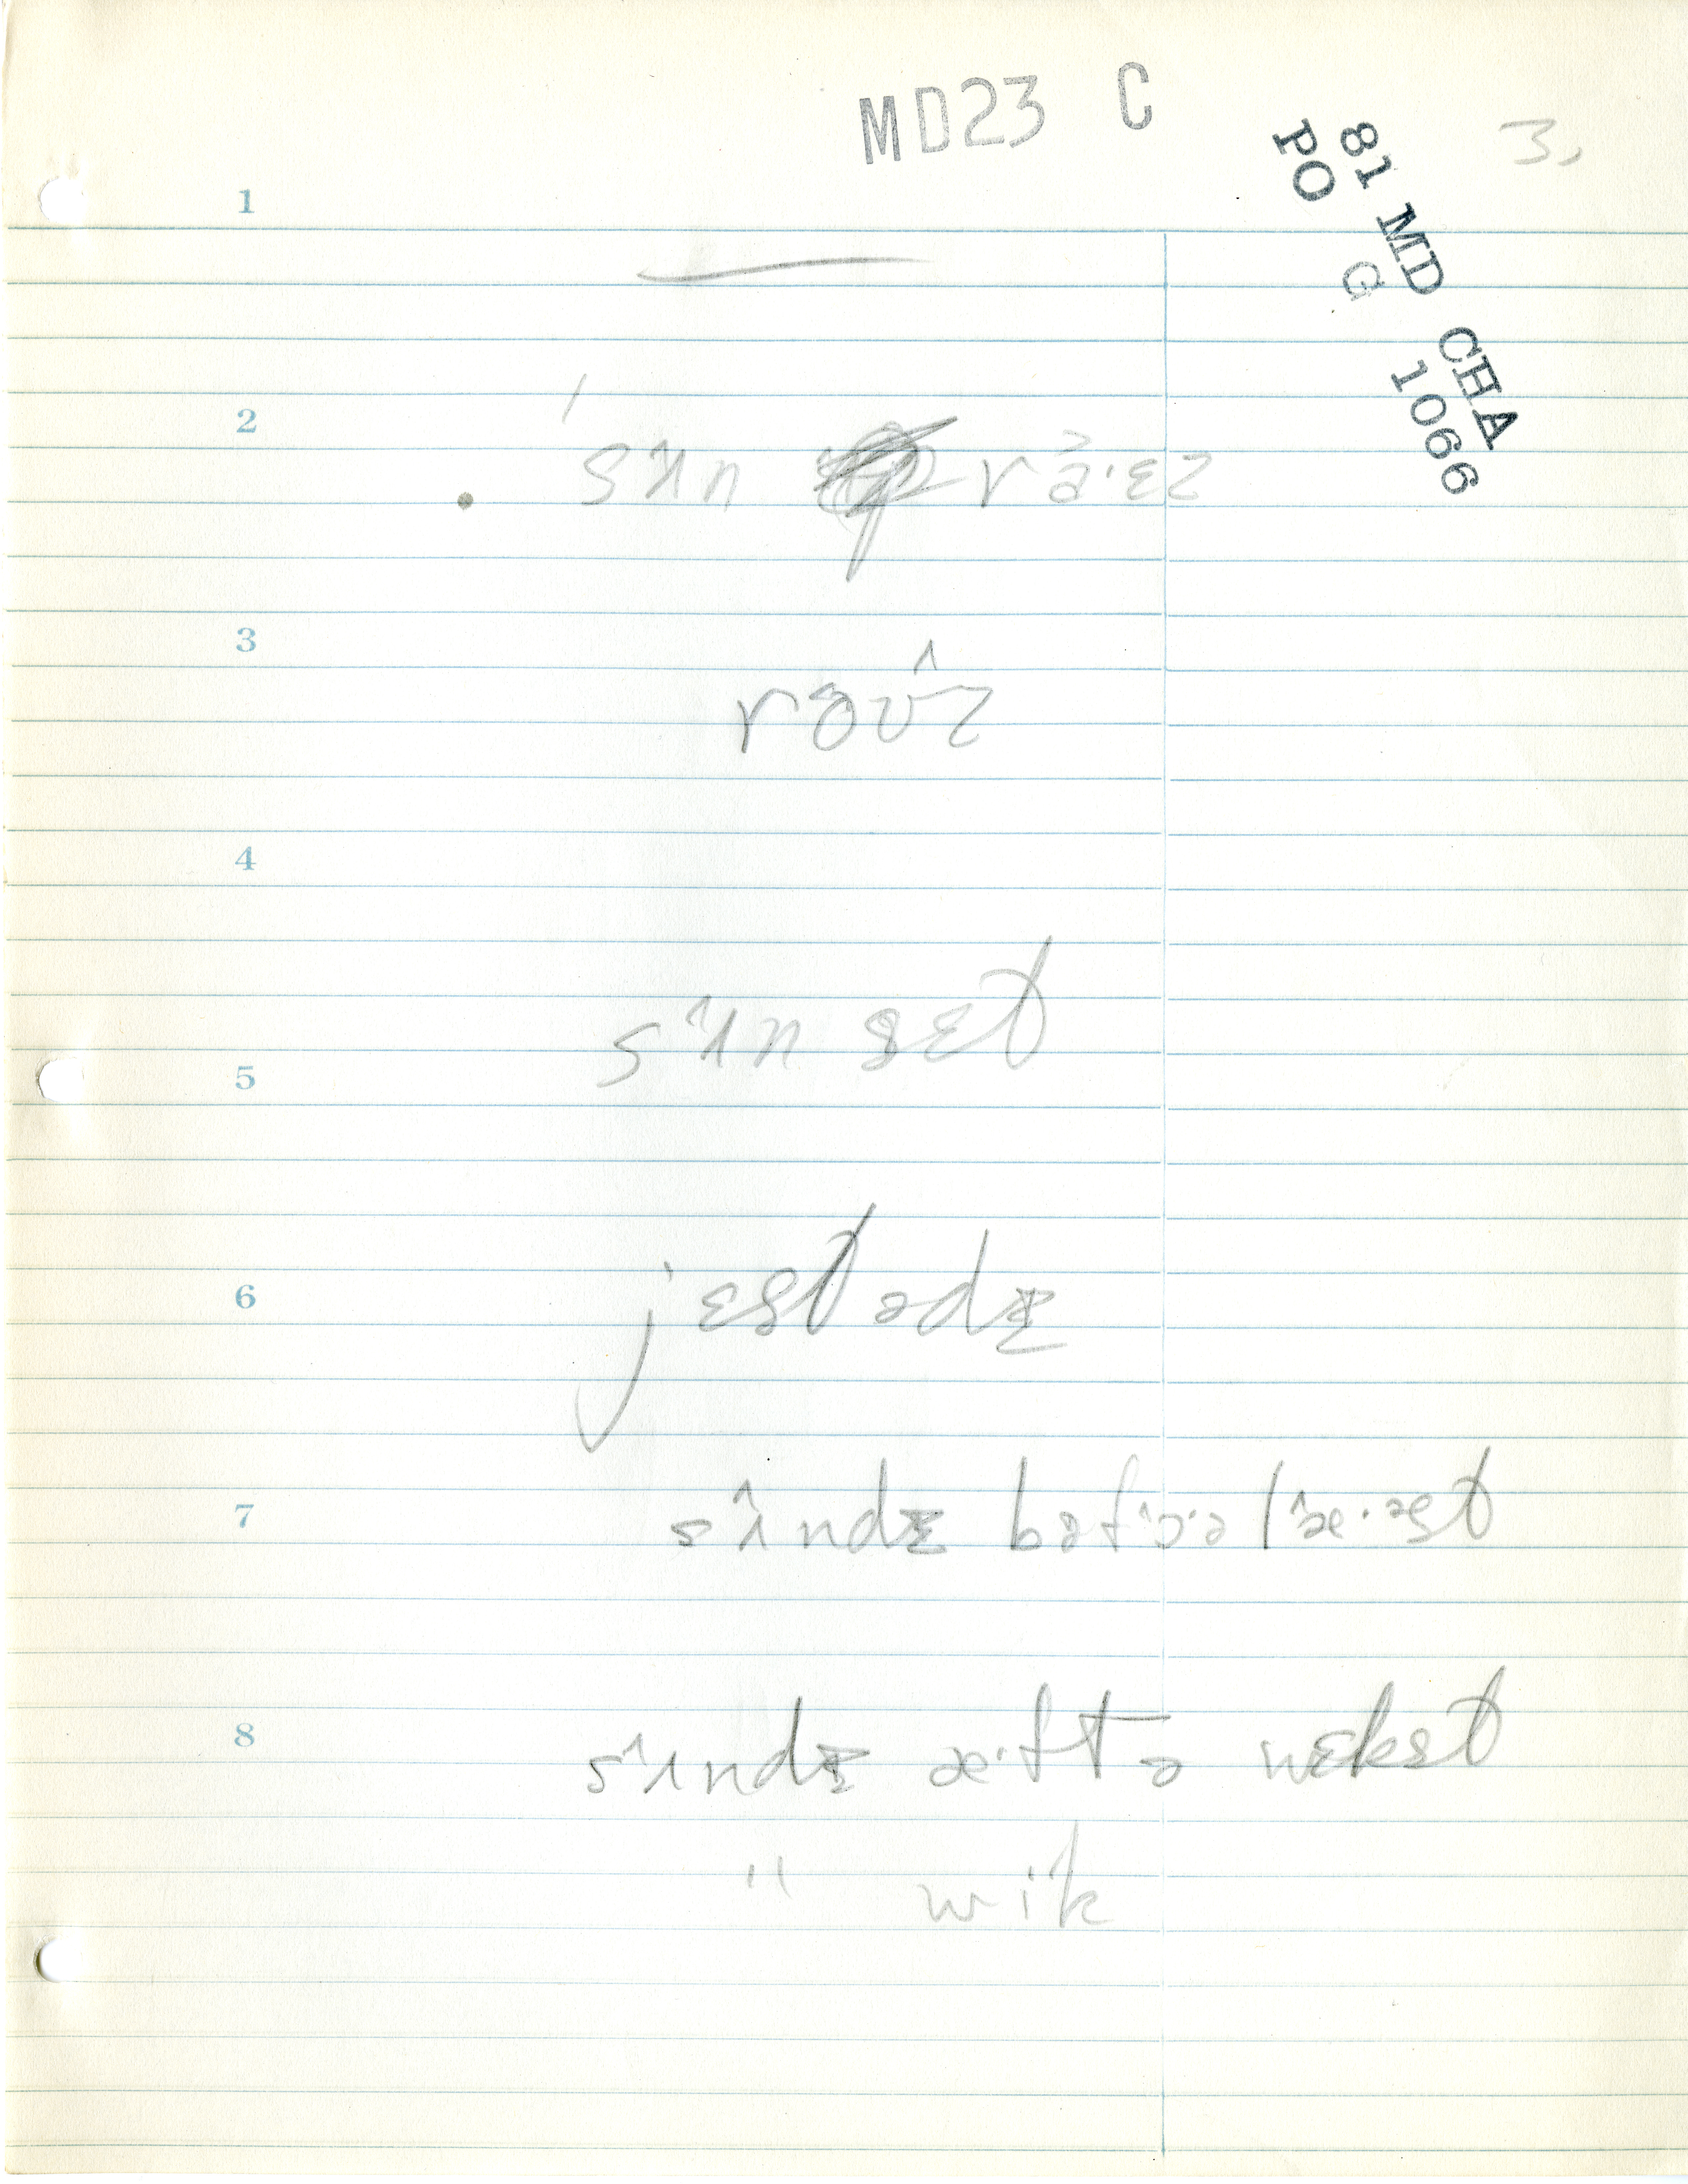 MD23 C
3.
81 MD CHA
PO G 1066
1
2
sʌn raɛ.ɛz
3
roʊ^z
4
sʌ^n sɛt
5
jɛstədɪ
6
7
sʌ^ndɪ bəfɔ^.ə læ^.əst
8
sʌ^ndɪ æ.ftə nɛkst
" wik